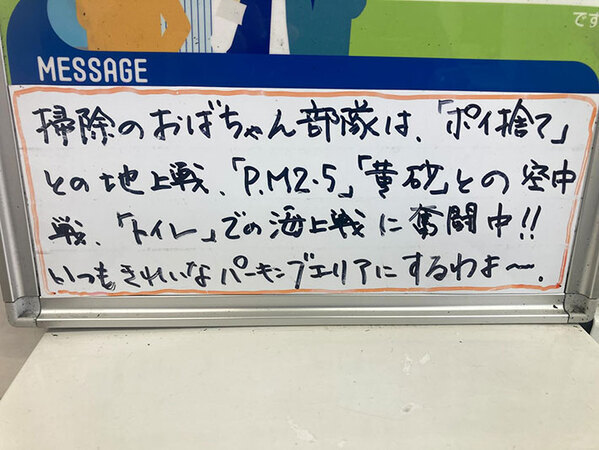 です
MESSAGE
掃除のおばちゃん部隊は、「ポイ捨て」
との地上戦、「P.M2.5」「黄砂」との空中
戦、「トイレ」での海上戦に奮闘中!!
いつもきれいなパーキングエリアにするわよ〜.